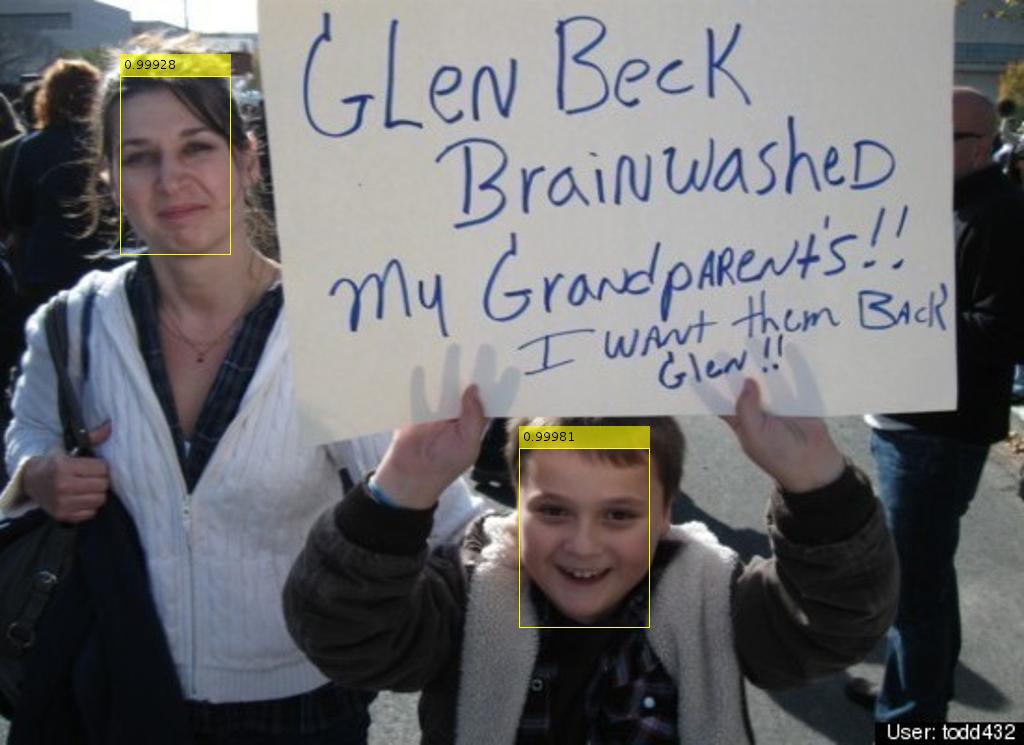 0.99928
GLen Beck
BrainwasheD
My GrandpARENt's!!
I WANt them BAcK
Glen!!
0.99981
User: todd432